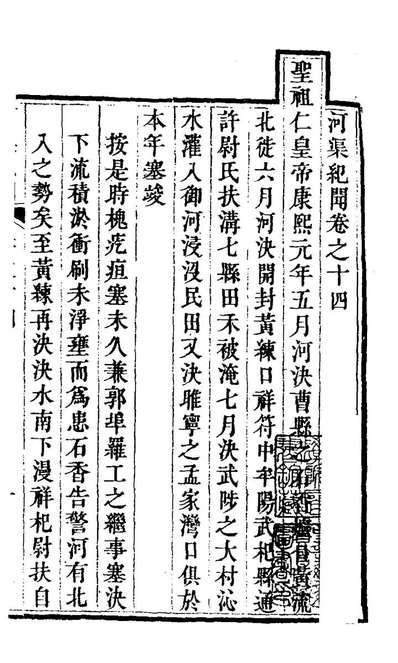 河渠紀聞卷之十四
聖祖仁皇帝康熙元年五月河決曹縣之石香爐自黃流
北徒六月河決開封黃練口祥符中牟陽武杞縣通
許尉氏扶溝七縣田禾被淹七月決武陟之大村沁
水灌入御河浸沒民田又決睢寧之孟家灣口俱於
本年塞竣
按是時槐疙疸塞未久兼郭埠羅工之繼事塞決
下流積淤衝刷未淨壅而爲患石香告警河有北
入之勢矣至黃練再決決水南下漫祥杞尉扶自